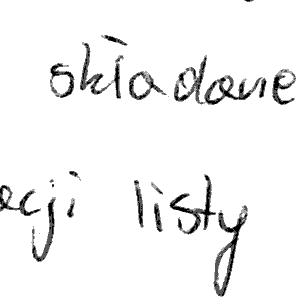 składane
acji listy